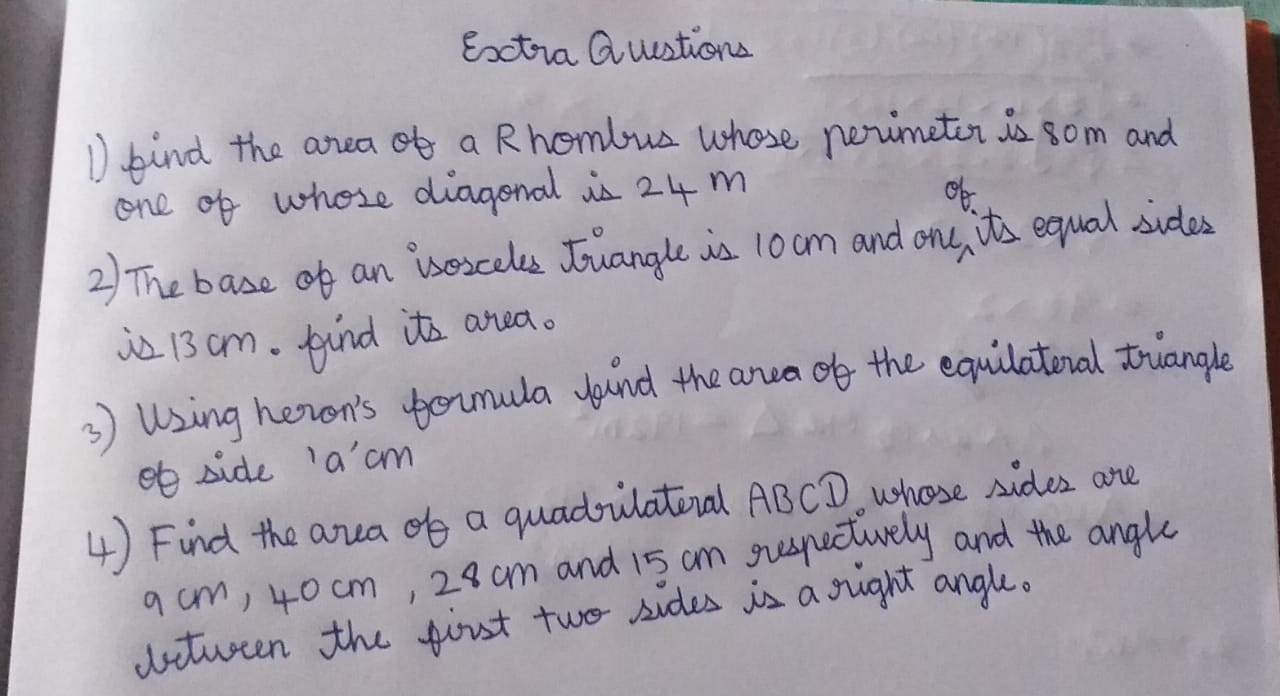 Extra Questions
1) find the area of a Rhombus whose perimeter is 80m and
one of whose diagonal is 24 m
2) The base of an isosceles triangle is 10cm and one of its equal sides
is 13 cm. find its area.
3) Using heron's formula find the area of the equilateral triangle
of side 'a' cm
4) Find the area of a quadrilateral ABCD whose sides are
9 cm, 40 cm, 28 cm and 15 cm respectively and the angle
between the first two sides is a right angle.